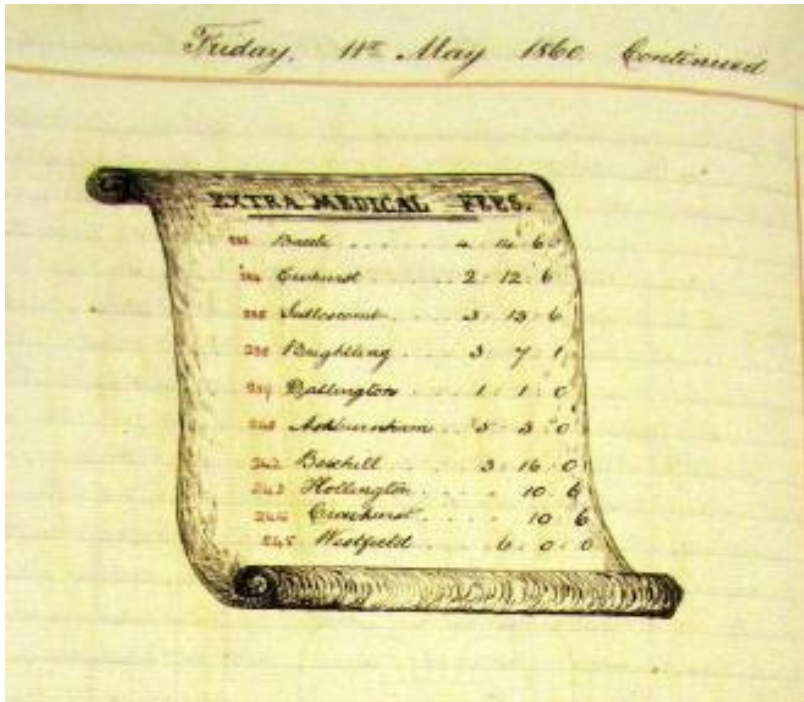 Friday, 11th May 1860 Continued
EXTRA MEDICAL FEES.
Battle . . . . . . 4 . 14 . 6
Ewhurst . . . . . 2 . 12 . 6
Sedlescomb . . . . 3 . 13 . 6
Brightling . . . . 3 . 7 . 1
239 Dallington . . . . 1 . 1 . 0
240 Ashburnham . . 5 . 3 . 0
242 Bexhill . . . . 3 . 16 . 0
243 Hollington . . . . 10 . 6
244 Crowhurst . . . . 10 6
245 Westfield . . . . 6 . 0 . 0